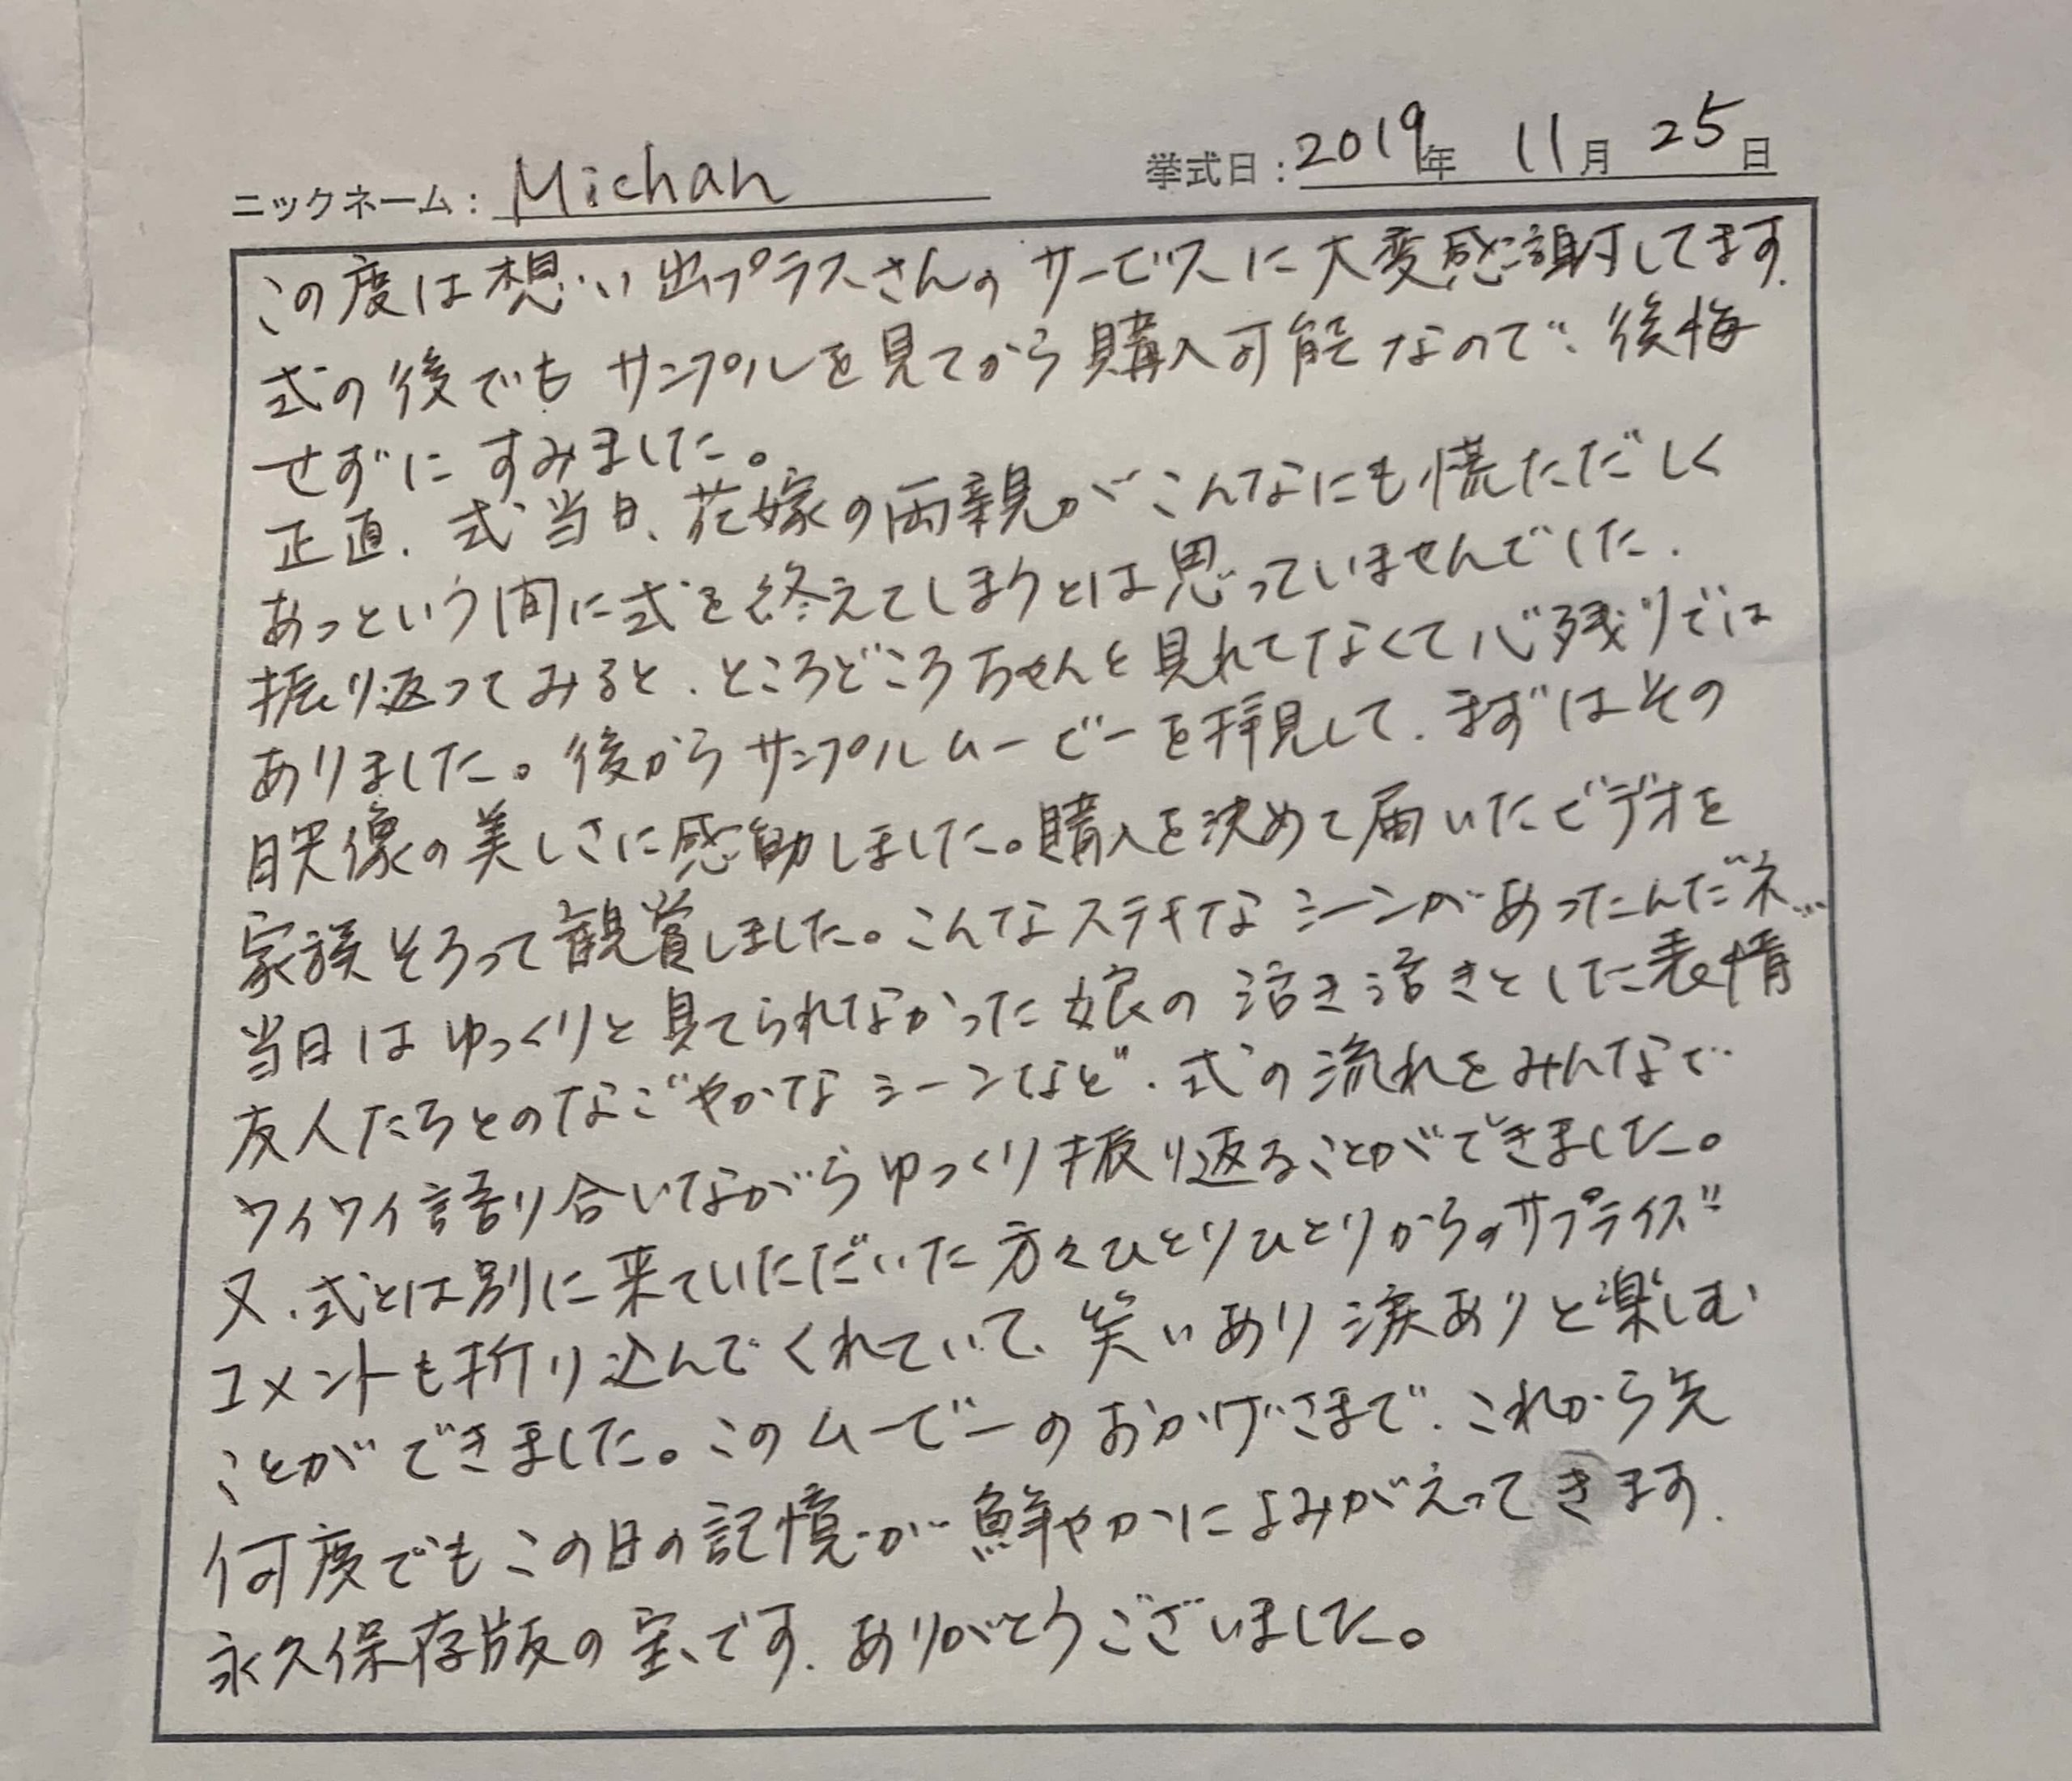 ニックネーム: Michan 挙式日: 2019年 11月 25日
この度は想い出プラスさんのサービスに大変感謝してます.
式の後でもサンプルを見てから購入可能なので、後悔
せずにすみました。
正直、式当日、花嫁の両親がこんなにも慌ただしく
あっという間に式を終えてしまうとは思っていませんでした.
振り返ってみると、ところどころちゃんと見れてなくて心残りでは
ありました。後からサンプルムービーを拝見して、まずはその
映像の美しさに感動しました。購入を決めて届いたビデオを
家族そろって観賞しました。こんなステキなシーンがあったんだネ…
当日はゆっくりと見てられなかった娘の活き活きとした表情
友人たちとのなごやかなシーンなど、式の流れをみんなで
ワイワイ語り合いながらゆっくり振り返ることができました。
又、式とは別に来ていただいた方々ひとりひとりからのサプライズ‼
コメントも折り込んでくれていて、笑いあり涙ありと楽しむ
ことができました。このムービーのおかげさまで、これから先
何度でもこの日の記憶が鮮やかによみがえってきます.
永久保存版の宝です. ありがとうございました。